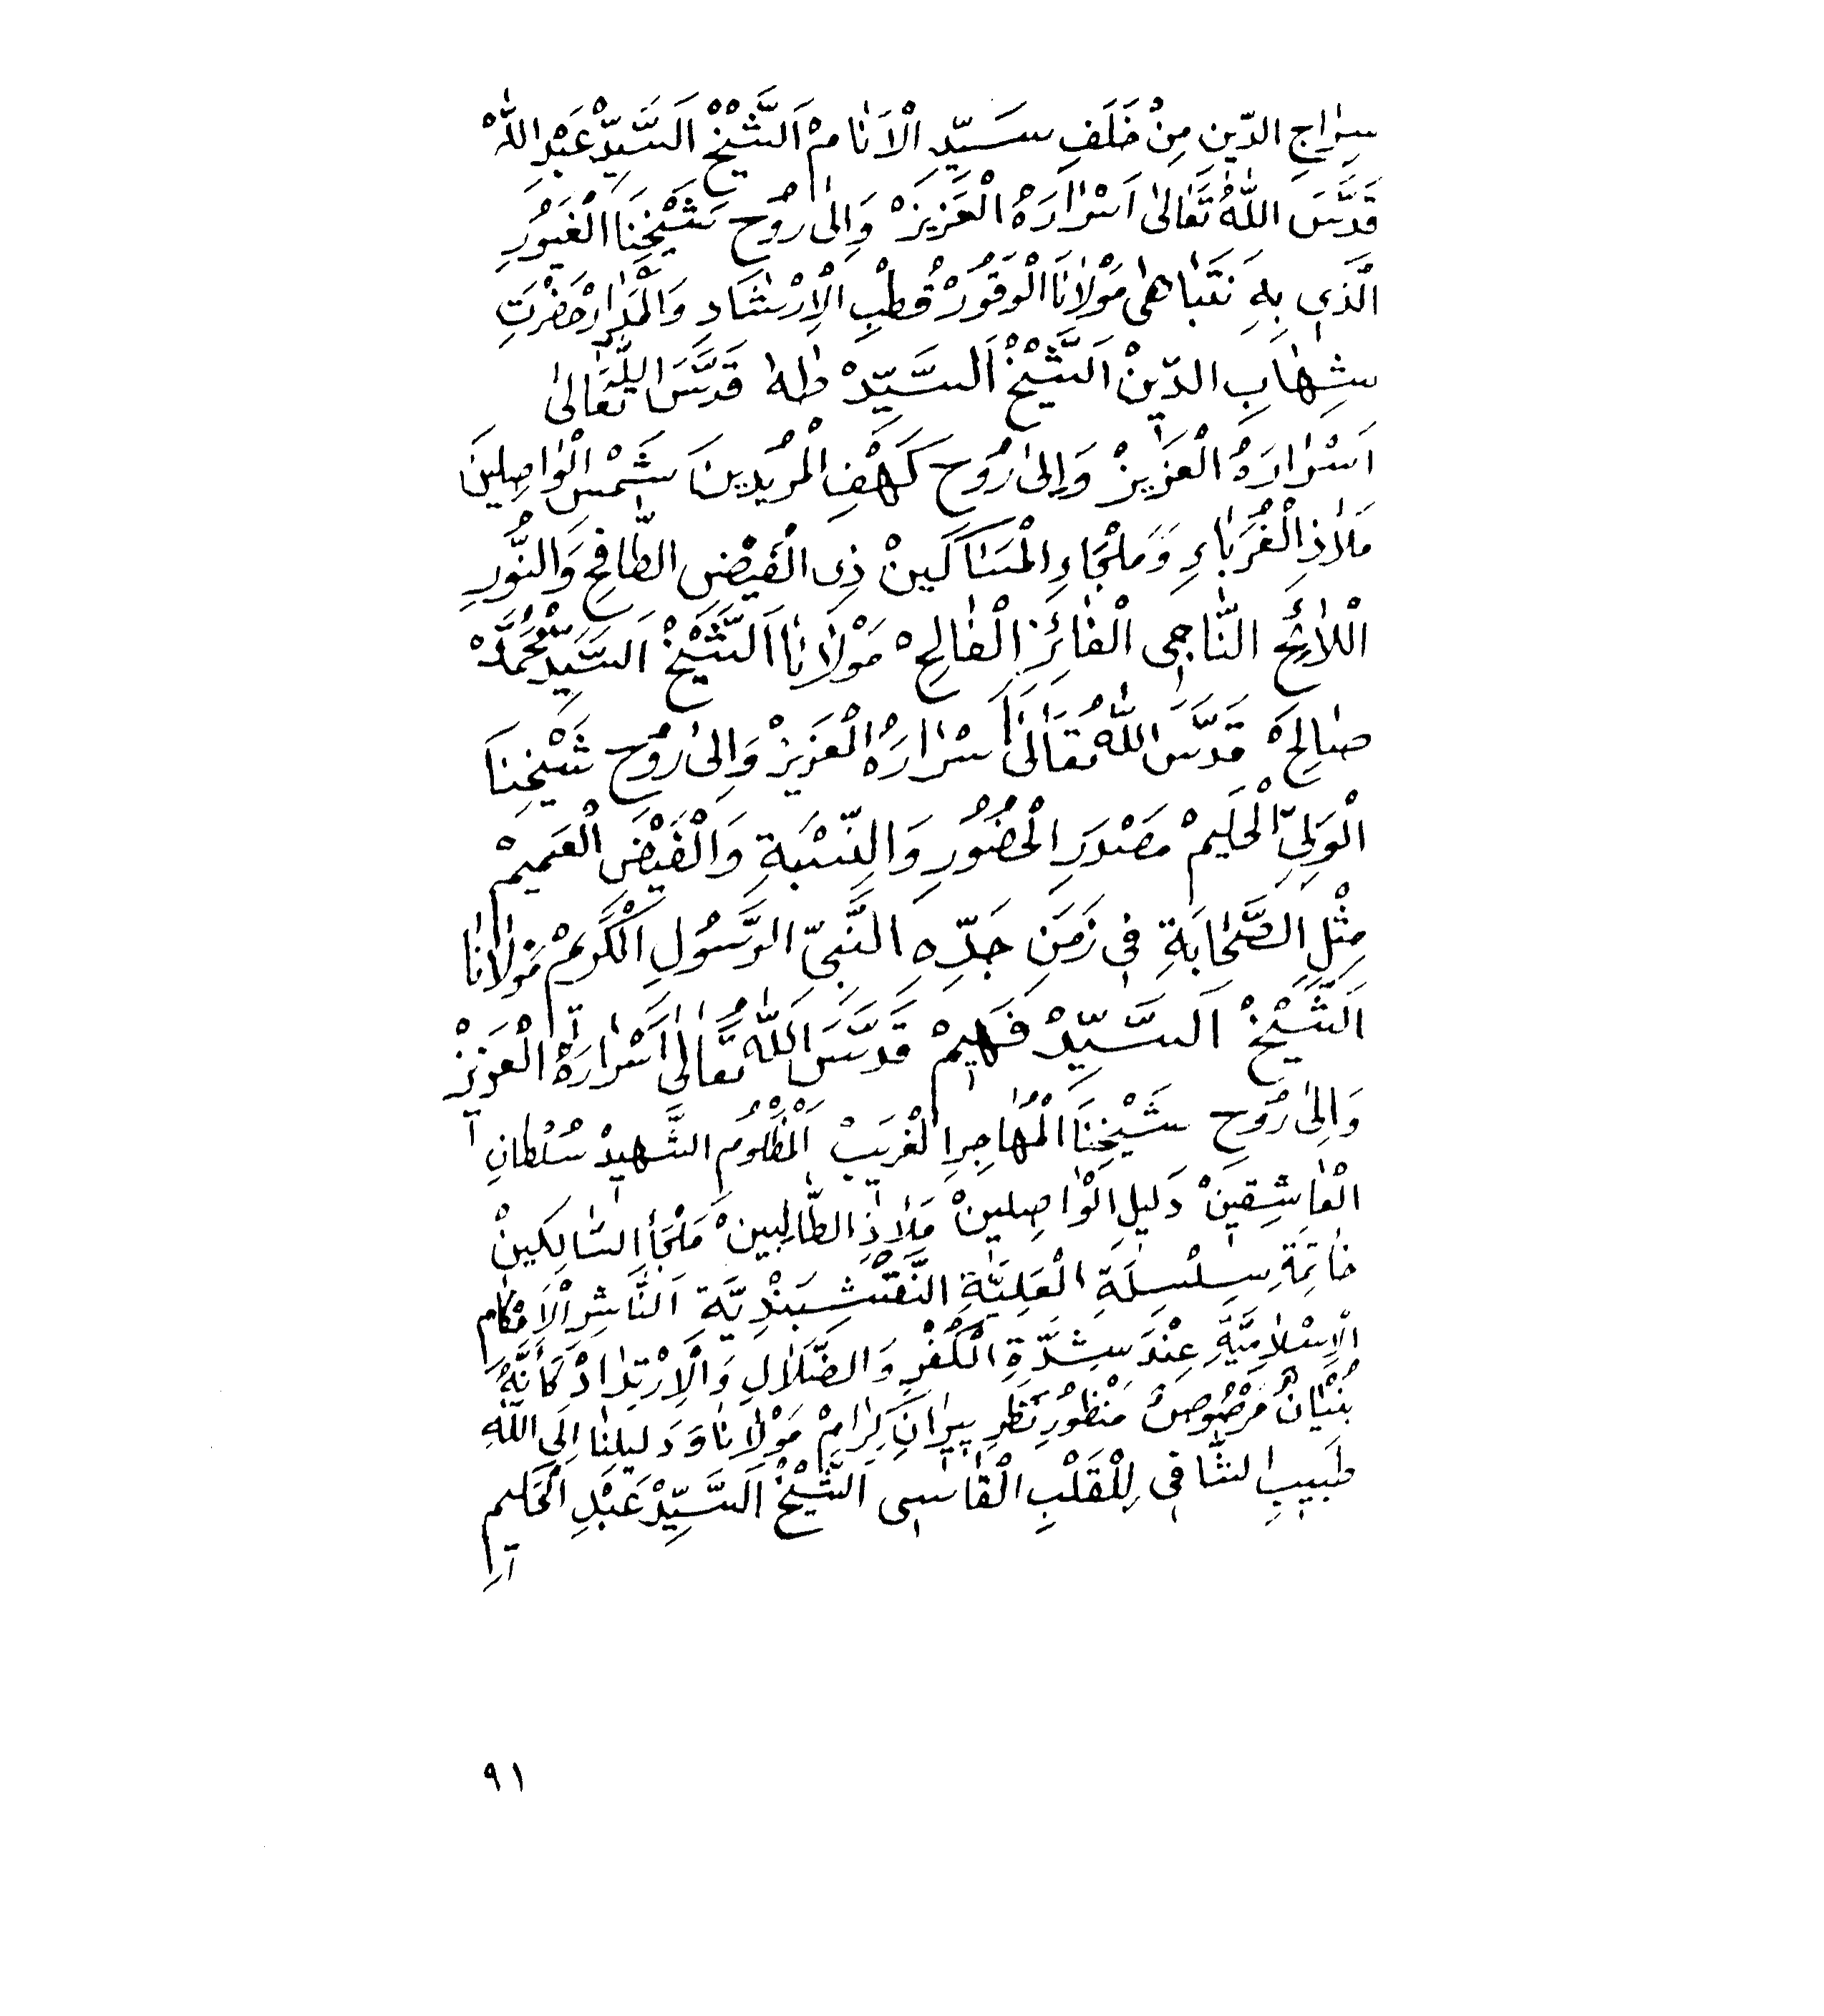 سِرَاجِ الدّينِ مِنْ خَلَفِ سَيِّدِ الْاَنَامْ اَلشَّيْخْ اَلسَّيِّدْ عَبْدِ اللّٰهْ
قَدَّسَ اللّٰهُ تَعَالٰى اَسْرَارَهُ الْعَزِيزْ وَاِلٰى رُوُحِ شَيْخِنَا الْغَيُورِ
الَّذِى بِهِ نَتَبَاهٰى مَوْلٰانَا الْوَقُورْ قُطْبِ الْاِرْشَادِ وَالْمَدَارْ حَضْرَتِ
شِهَابِ الدّينْ اَلشَّيْخْ اَلسَّيِّدْ طٰهٰ قَدَّسَ اللّٰهُ تَعَالٰى
اَسْرَارَهُ الْعَزِيزْ وَاِلٰى رُوُحِ كَهْفِ الْمُرِيدِينَ شَمْسِ الْوَاصِلِينَ
مَلَاذِ الْغُرَبَاءِ وَمَلْجَاءِ الْمَسَاكَينْ ذِى الْفَيْضِ الطَّافِحِ وَالنُّورِ
اللَّائِحِ النَّاجِى الْفَائِزِ الْفَالِحْ مَوْلٰانَا اَلشَّيْخْ اَلسَّيِّدْ مُحَمَّدْ
صَالِحْ قَدَّسَ اللّٰهُ تَعَالٰى اَسْرَارَهُ الْعَزِيزْ وَاِلٰى رُوُحِ شَيْخِنَا
الْوَلِىِّ الْحَلِيمْ مَصْدَرِ الْحُضُورِ وَالنِّسْبَةِ وَالْفَيْضِ الْعَمِيمْ
مِثْلِ الصَّحَابَةِ فِى زَمَنِ جَدِّهِ النَّبِىِّ الرَّسُولِ الْكَرِيمْ مَوْلٰانَا
اَلشَّيْخْ اَلسَّيِّدْ فَهِيمْ قَدَّسَ اللّٰهُ تَعَالٰى اَسْرَارَهُ الْعَزِيزْ
وَاِلٰى رُوُحِ شَيْخِنَا الْمُهَاجِرِ الْغَرِيبْ اَلْمَظْلُومِ الشَّهِيدْ سُلْطَانِ
الْعَاشِقِينْ دَلِيلِ الْوَاصِلِينْ مَلَاذِ الطَّالِبِينْ مَلْجَأِ السَّالِكِينْ
خَاتِمَةِ سِلْسِلَةِ الْعَلِيَّةِ النَّقْشِبَنْدِيَّةِ اَلنَّاشِرِ الْاَحْكَامِ
الْاِسْلَامِيَّةِ عِنْدَ شِدَّةِ الْكُفْرِ وَالضَّلَالِ وَالْاِرْتِدَادْ كَأَنَّهُ
بُنْيَانٌ مَرْصُوصٌ مَنْظُورِ نَظَرِ پِيرَانِ كِرَامْ مَوْلٰانَا وَدَلِيلِنَا اِلَى اللّٰهِ
طَبِيبِ الشَّافِى لِلْقَلْبِ الْقَاسِى اَلشَّيْخْ اَلسَّيِّدْ عَبْدِ الْحَكِيمِ
٩١